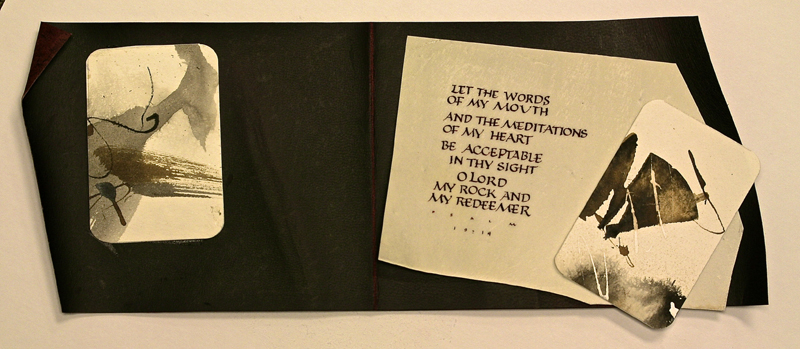 LET THE WORDS
OF MY MOUTH
AND THE MEDITATIONS
OF MY HEART
BE ACCEPTABLE
IN THY SIGHT
O LORD
MY ROCK AND
MY REDEEMER
PSALM
19:14